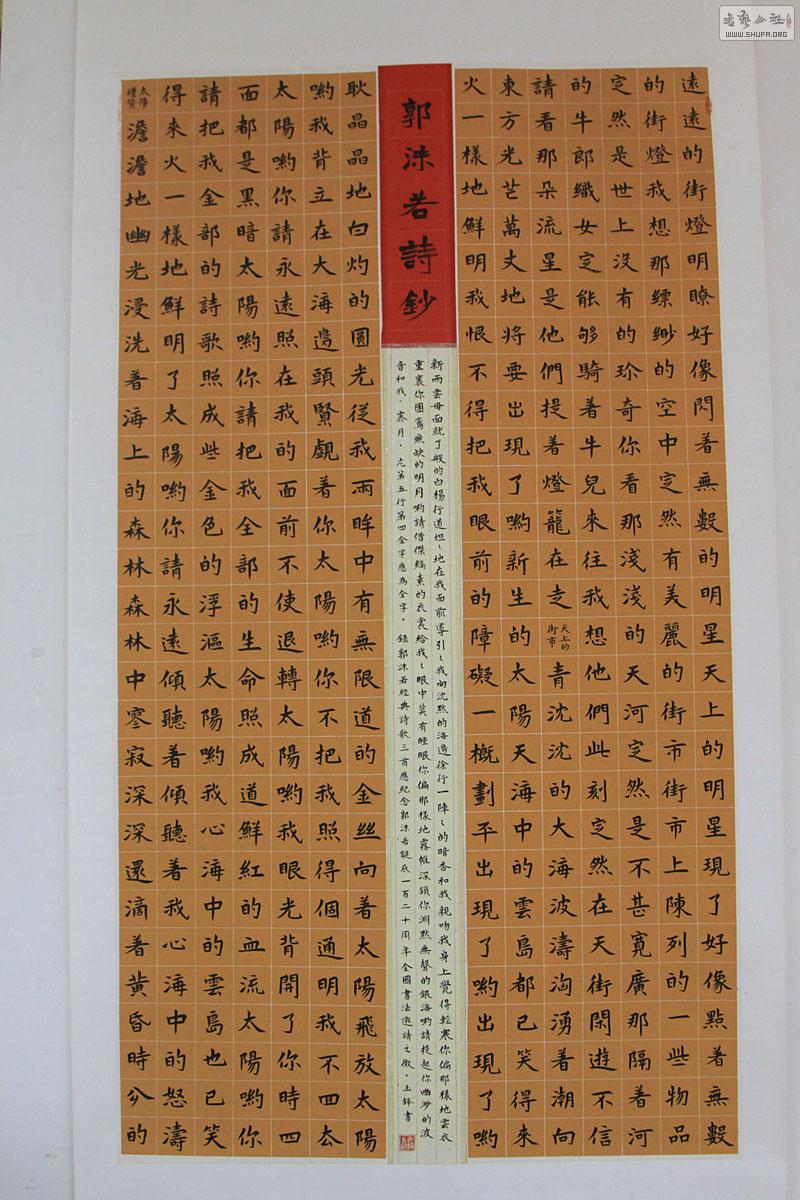 書藝公社
WWW.SHUFA.ORG
遠遠的街燈明瞭好像閃着無數的明星天上的明星現了好像點着無數
的街燈我想那縹緲的空中定然有美麗的街市街市上陳列的一些物品
定然是世上沒有的珍奇你看那淺淺的天河定然是不甚寬廣那隔着河
的牛郎織女定能够騎着牛兒來往我想他們此刻定然在天街閑遊不信
請看那朵流星是他們提着燈籠在走天上的街市青沈沈的大海波濤洶湧着潮向
東方光芒萬丈地將要出現了喲新生的太陽天海中的雲島都已笑得來
火一樣地鮮明我恨不得把我眼前的障礙一概劃平出現了喲出現了喲
郭沫若詩鈔
耿晶晶地白灼的圓光從我兩眸中有無限道的金絲向着太陽飛放太陽
喲我背立在大海邊頭賢覷着你太陽喲你不把我照得個通明我不回去
太陽喲你請永遠照在我的面前不使退轉太陽喲我眼光背開了你時四
面都是黑暗太陽喲你請把我全部的生命照成道鮮紅的血流太陽喲你
請把我金部的詩歌照成些金色的浮漚太陽喲我心海中的雲島也已笑
得來火一樣地鮮明了太陽喲你請永遠傾聽着傾聽着我心海中的怒濤
太陽禮贊澹澹地幽光浸洗着海上的森林森林中寥寂深深還滴着黃昏時分的
新雨雲母面就了般的白楊行道坦〻地在我面前導引〻我向沈默的海邊徐行一陣〻的暗香和我親吻我身上覺得輕寒你偏那樣地雲衣
重裹你團鸞無缺的明月喲請借縞素的衣裳給我〻眼中莫有睡眠你偏那樣地霧帷深鎖你淵默無聲的銀海喲請提起你幽渺的波
音和我。霽月。左第五行第四金字應為全字。錄郭沫若經典詩歌三首應紀念郭沫若誕辰一百二十周年全國書法邀請之徵。王鋒書